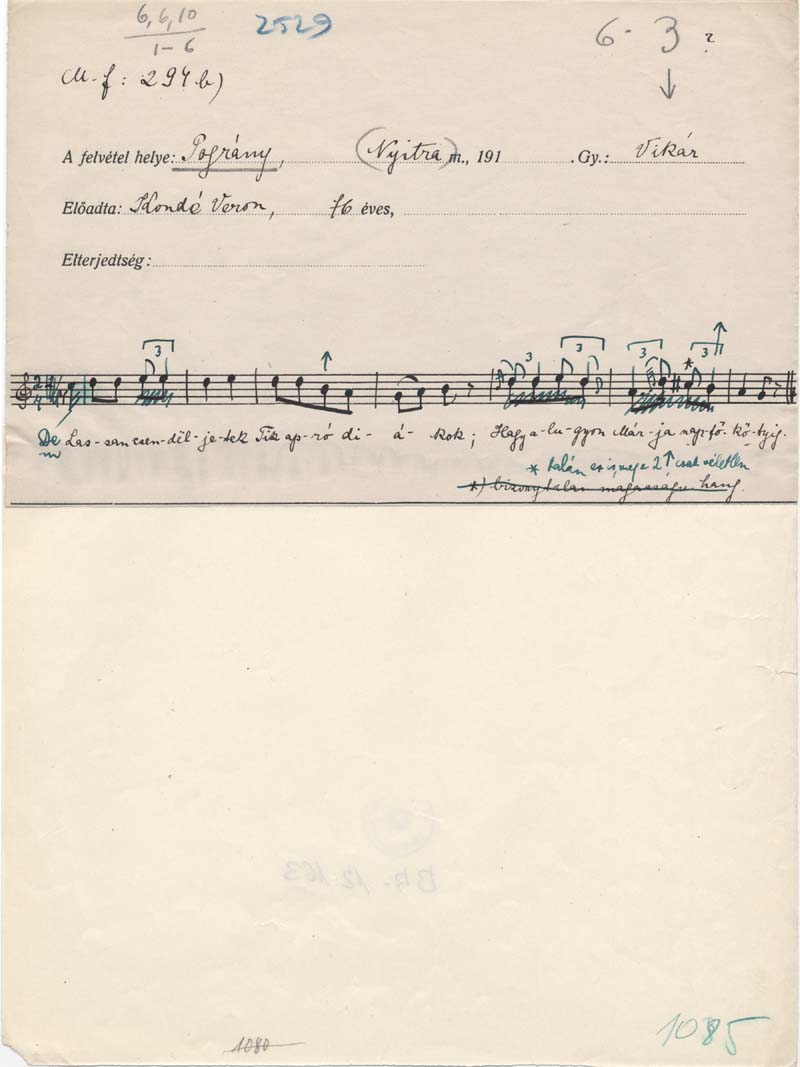 6, 6, 10
1-6
2529
6- 3 ?
M.f: 294 b)
A felvétel helye: Pográny, (Nyitra) m., 191 . Gy.: Vikár
Előadta: Kondé Veron, 76 éves,
Elterjedtség:
3 3 3 3 3
2
4
De Las-san csen-dël-je-tek Tik ap-ró di-á-kok; Hagy a-lu-gyon Már-ja nap-fő-kö-tyig.
* talán ez is, meg a 2 ↑ csak véletlen
*) bizonytalan magasságu hang.
BR- 12 163
1080
1085